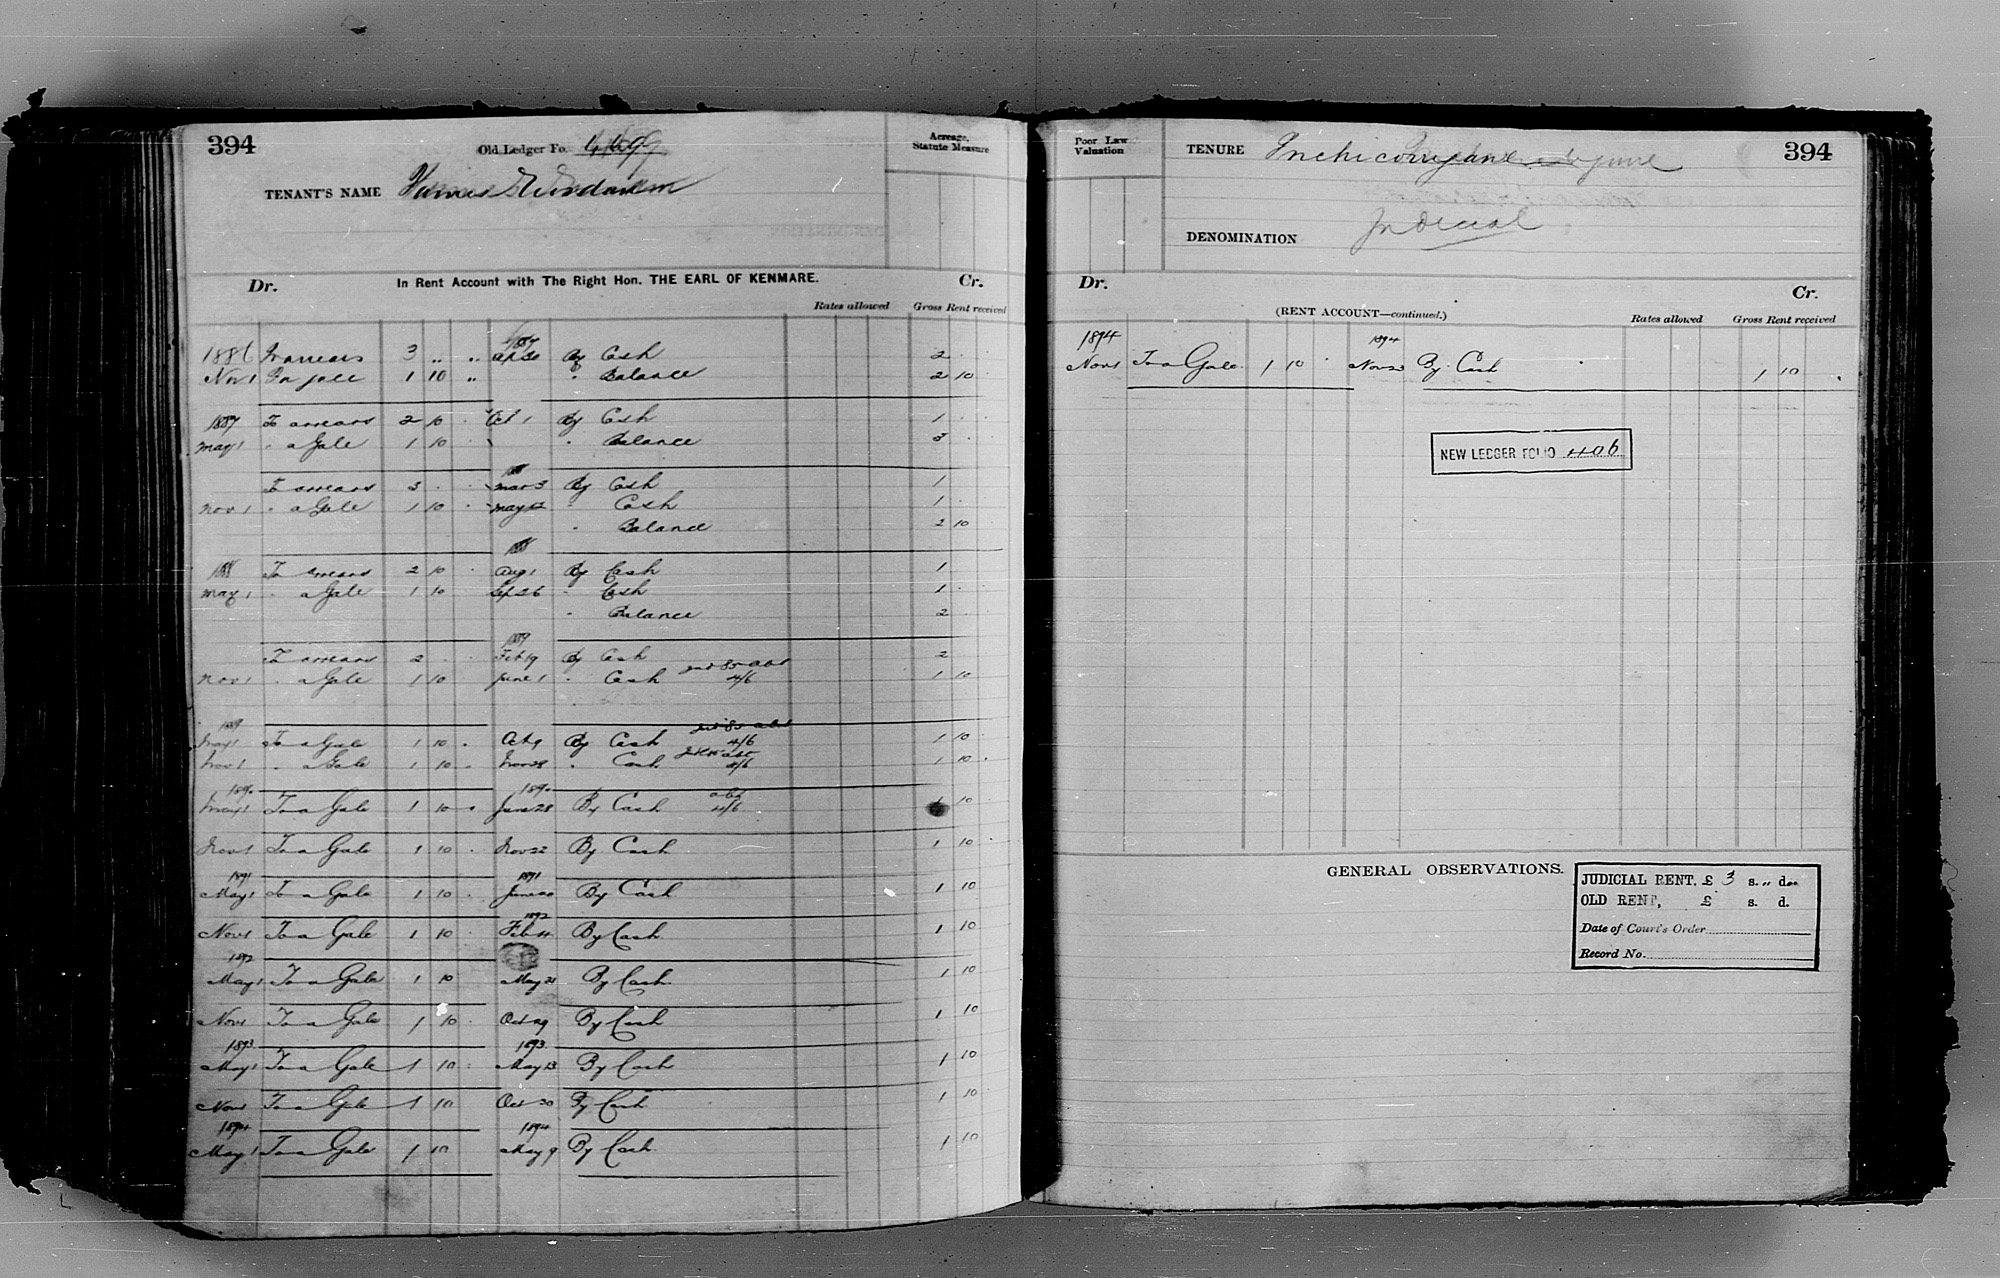 394
Old Ledger Fo.
Acreage, Statute Measure
TENANT'S NAME
Dr. In Rent Account with The Right Hon. THE EARL OF KENMARE. Cr.
Rates allowed Gross Rent received
1887
1886 To arrears 3 " " By Cash 2
Nov 1 1 10 " " Balance 2 10
1887 To arrears 2 10 Oct 1 By Cash 1
May 1 " a Gale 1 10 " Balance 3
188
To arrears 3 Mar 3 By Cash 1
Nov 1 " a Gale 1 10 May 12 " Cash 1
" Balance 2 10
188
188 To arrears 2 10 Aug 1 By Cash 1
May 1 " a Gale 1 10 Sep 26 " Cash 1
" Balance 2
1889
To arrears 2 Feb 19 By Cash 2
Nov 1 " a Gale 1 10 June 1 " Cash 4/6 1 10
1889
May 1 To a Gale 1 10 Oct 9 By Cash 4/6 1 10
Nov 1 " a Gale 1 10 Nov 28 " Cash 4/6 1 10
1890 1890 abt
May 1 To a Gale 1 10 June 28 By Cash 4/6 1 10
Nov 1 To a Gale 1 10 Nov 22 By Cash 1 10
1891 1891
May 1 To a Gale 1 10 June 20 By Cash 1 10
1892
Nov 1 To a Gale 1 10 Feb 11 By Cash 1 10
1892
May 1 To a Gale 1 10 May 21 By Cash 1 10
Nov 1 To a Gale 1 10 Oct 29 By Cash 1 10
1893 1893
May 1 To a Gale 1 10 May 13 By Cash 1 10
Nov 1 To a Gale 1 10 Oct 30 By Cash 1 10
1894 1894
May 1 To a Gale 1 10 May 9 By Cash 1 10
Poor Law Valuation
TENURE
394
DENOMINATION Judicial
Dr. Cr.
(RENT ACCOUNT—continued.)
Rates allowed Gross Rent received
1894 1894
Nov 1 To a Gale 1 10 Nov 23 By Cash 1 10
NEW LEDGER FOLIO 406
GENERAL OBSERVATIONS.
JUDICIAL RENT, £ 3 s. " d. "
OLD RENT, £ s. d.
Date of Court's Order
Record No.